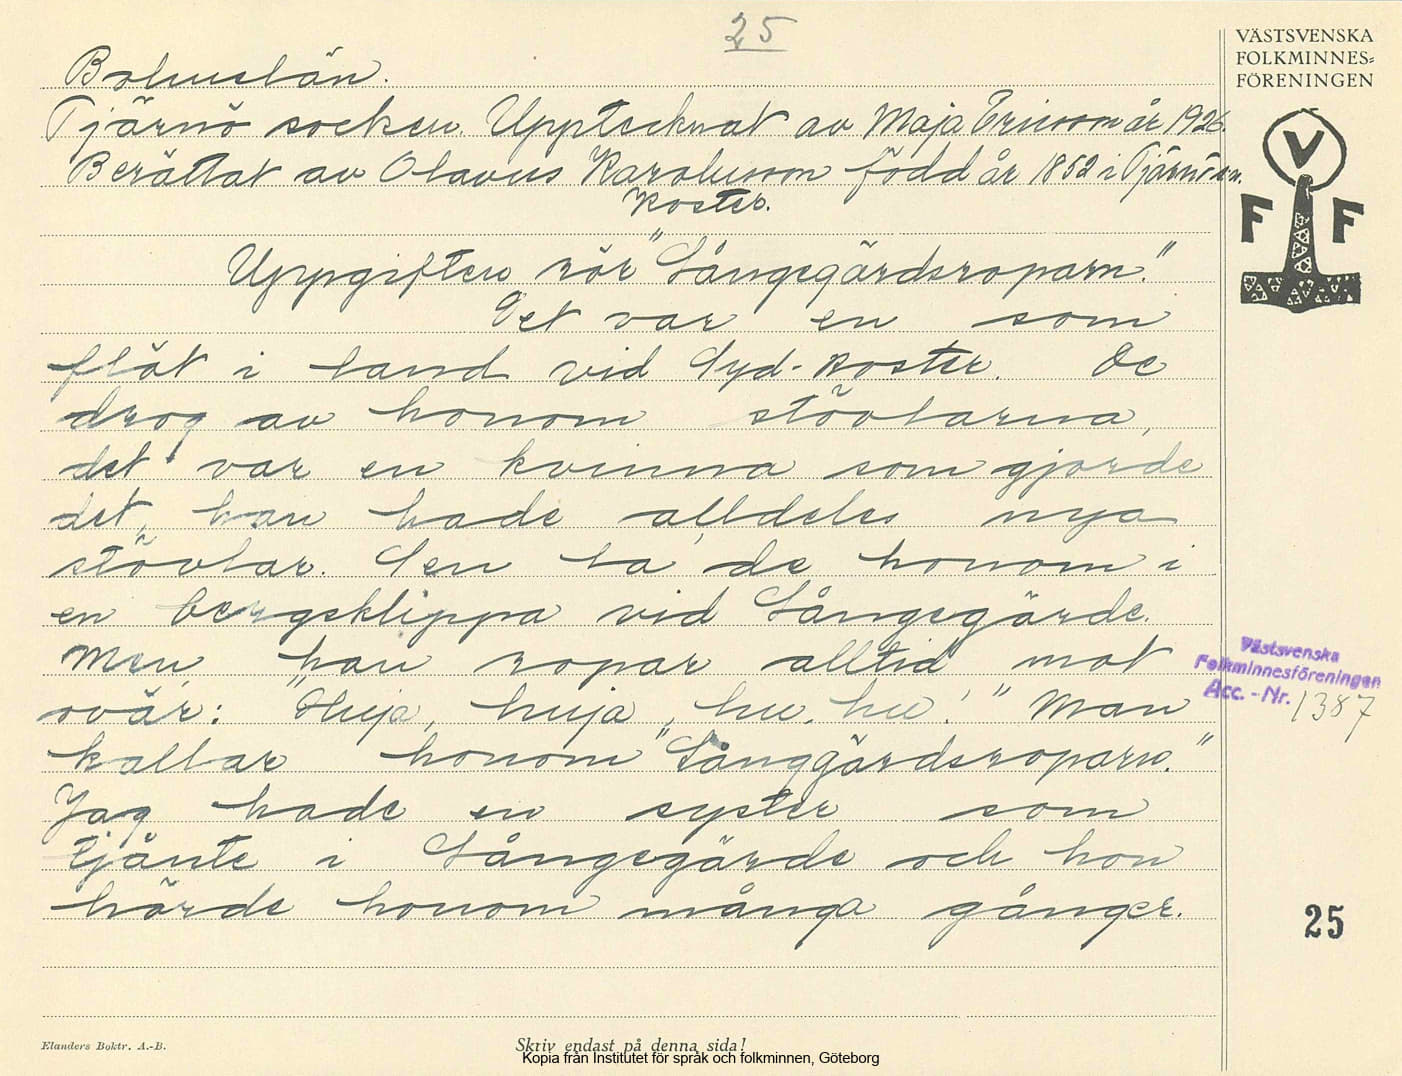 25
VÄSTSVENSKA
FOLKMINNES=
FÖRENINGEN
V
F F
Bohuslän.
Tjärnö socken. Upptecknat av Maja Ericson år 1926.
Berättat av Olavus Karolusson född år 1852 i Tjärnö sn.
Koster.
Uppgiften rör "Långegärdsroparn."
Det var en som
flöt i land vid Syd-Koster. De
drog av honom stövlarna,
det var en kvinna som gjorde
det, han hade alldeles nya
stövlar. Sen la de honom i
en bergsklippa vid Långegärde.
Men han ropar alltid mot
ovär: "Huja, huja, hu, hu!" Man
kallar honom "Långgärdsroparn."
Jag hade en syster som
tjänte i Långegärde och hon
hörde honom många gånger.
Västsvenska
Folkminnesföreningen
Acc. - Nr. 1387
25
Elanders Boktr. A.-B.
Skriv endast på denna sida!
Kopia från Institutet för språk och folkminnen, Göteborg